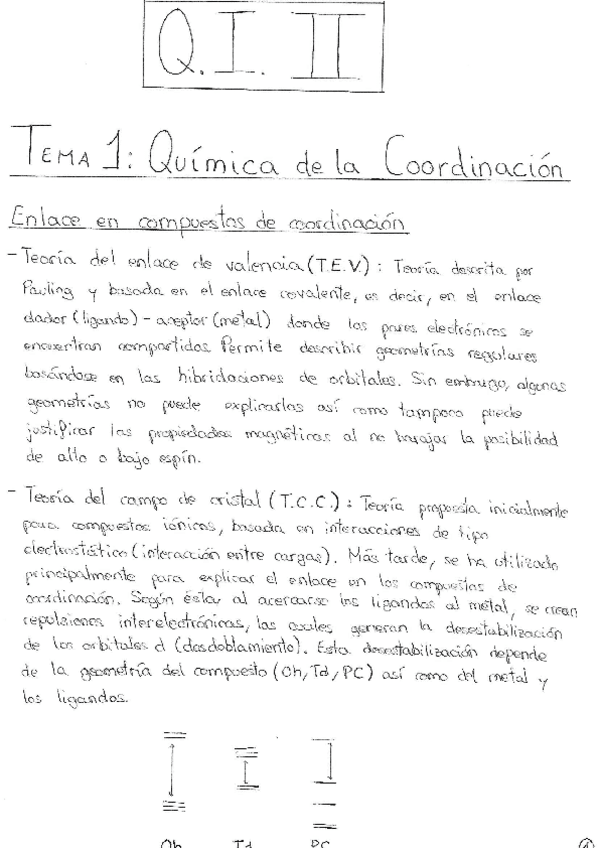 Q.I. II
TEMA 1: Química de la Coordinación
Enlace en compuestos de coordinación
- Teoría del enlace de valencia (T.E.V.) : Teoría descrita por
Pauling y basada en el enlace covalente, es decir, en el enlace
dador (ligando) - aceptor (metal) donde los pares electrónicos se
encuentran compartidos. Permite describir geometrías regulares
basándose en las hibridaciones de orbitales. Sin embargo, algunas
geometrías no puede explicarlas así como tampoco puede
justificar las propiedades magnéticas al no barajar la posibilidad
de alto o bajo espín.
- Teoría del campo de cristal (T.C.C.) : Teoría propuesta inicialmente
para compuestos iónicos, basada en interacciones de tipo
electrostático (interacción entre cargas). Más tarde, se ha utilizado
principalmente para explicar el enlace en los compuestos de
coordinación. Según ésta al acercarse los ligandos al metal, se crean
repulsiones interelectrónicas, las cuales generan la desestabilización
de los orbitales d (desdoblamiento). Esta desestabilización depende
de la geometría del compuesto (Oh, Td, PC) así como del metal y
los ligandos.
Oh Td PC
1